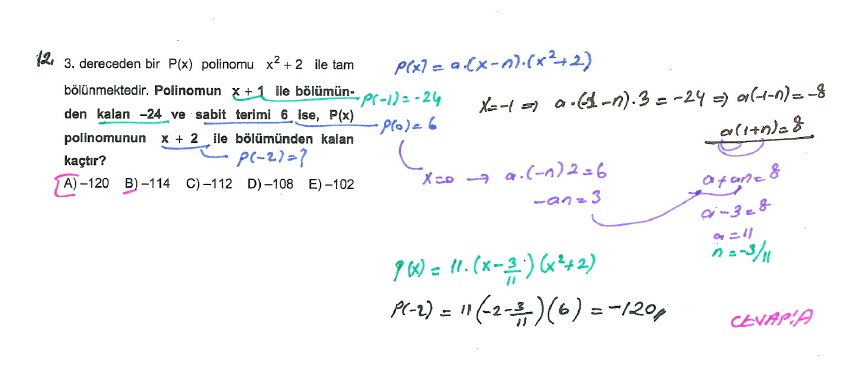 12.
3. dereceden bir P(x) polinomu x² + 2 ile tam
bölünmektedir. Polinomun x + 1 ile bölümün-
den kalan –24 ve sabit terimi 6 ise, P(x)
polinomunun x + 2 ile bölümünden kalan
kaçtır?
A) –120 B) –114 C) –112 D) –108 E) –102
P(-1) = -24
P(0) = 6
P(-2) = ?
P(x) = a.(x-n).(x²+2)
x=-1 ⇒ a.(-1-n).3 = -24 ⇒ a(-1-n) = -8
a(1+n) = 8
x=0 → a.(-n)2 = 6
-an = 3
a+an = 8
a-3 = 8
a = 11
n = -3/11
P(x) = 11.(x-3/11)(x²+2)
P(-2) = 11(-2-3/11)(6) = -120
CEVAP: A